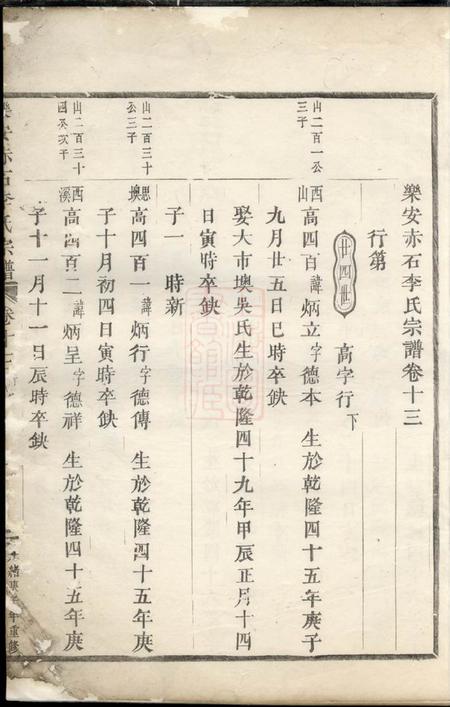 樂安赤石李氏宗譜卷十三
行第
廿四世
高字行下
山二百一公三子
西山
高四百諱炳立字德本 生於乾隆四十五年庚子
九月廿五日巳時卒缺
娶大市墺吳氏生於乾隆四十九年甲辰正月十四
日寅時卒缺
子一 時新
山二百三十公三子
思墺
高四百一諱炳行字德傳 生於乾隆四十五年庚
子十月初四日寅時卒缺
山二百三十
西溪
高四百二諱炳呈字德祥 生於乾隆四十五年庚
子十一月十一日辰時卒缺
樂安赤石李氏宗譜
卷十
年重修